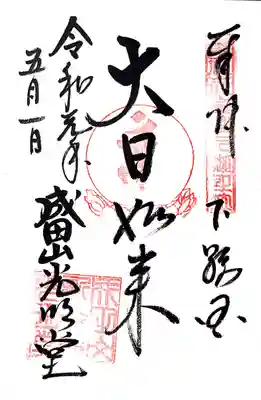 奉拝 下総国
大日如来
令和元年
五月一日
成田山光明堂